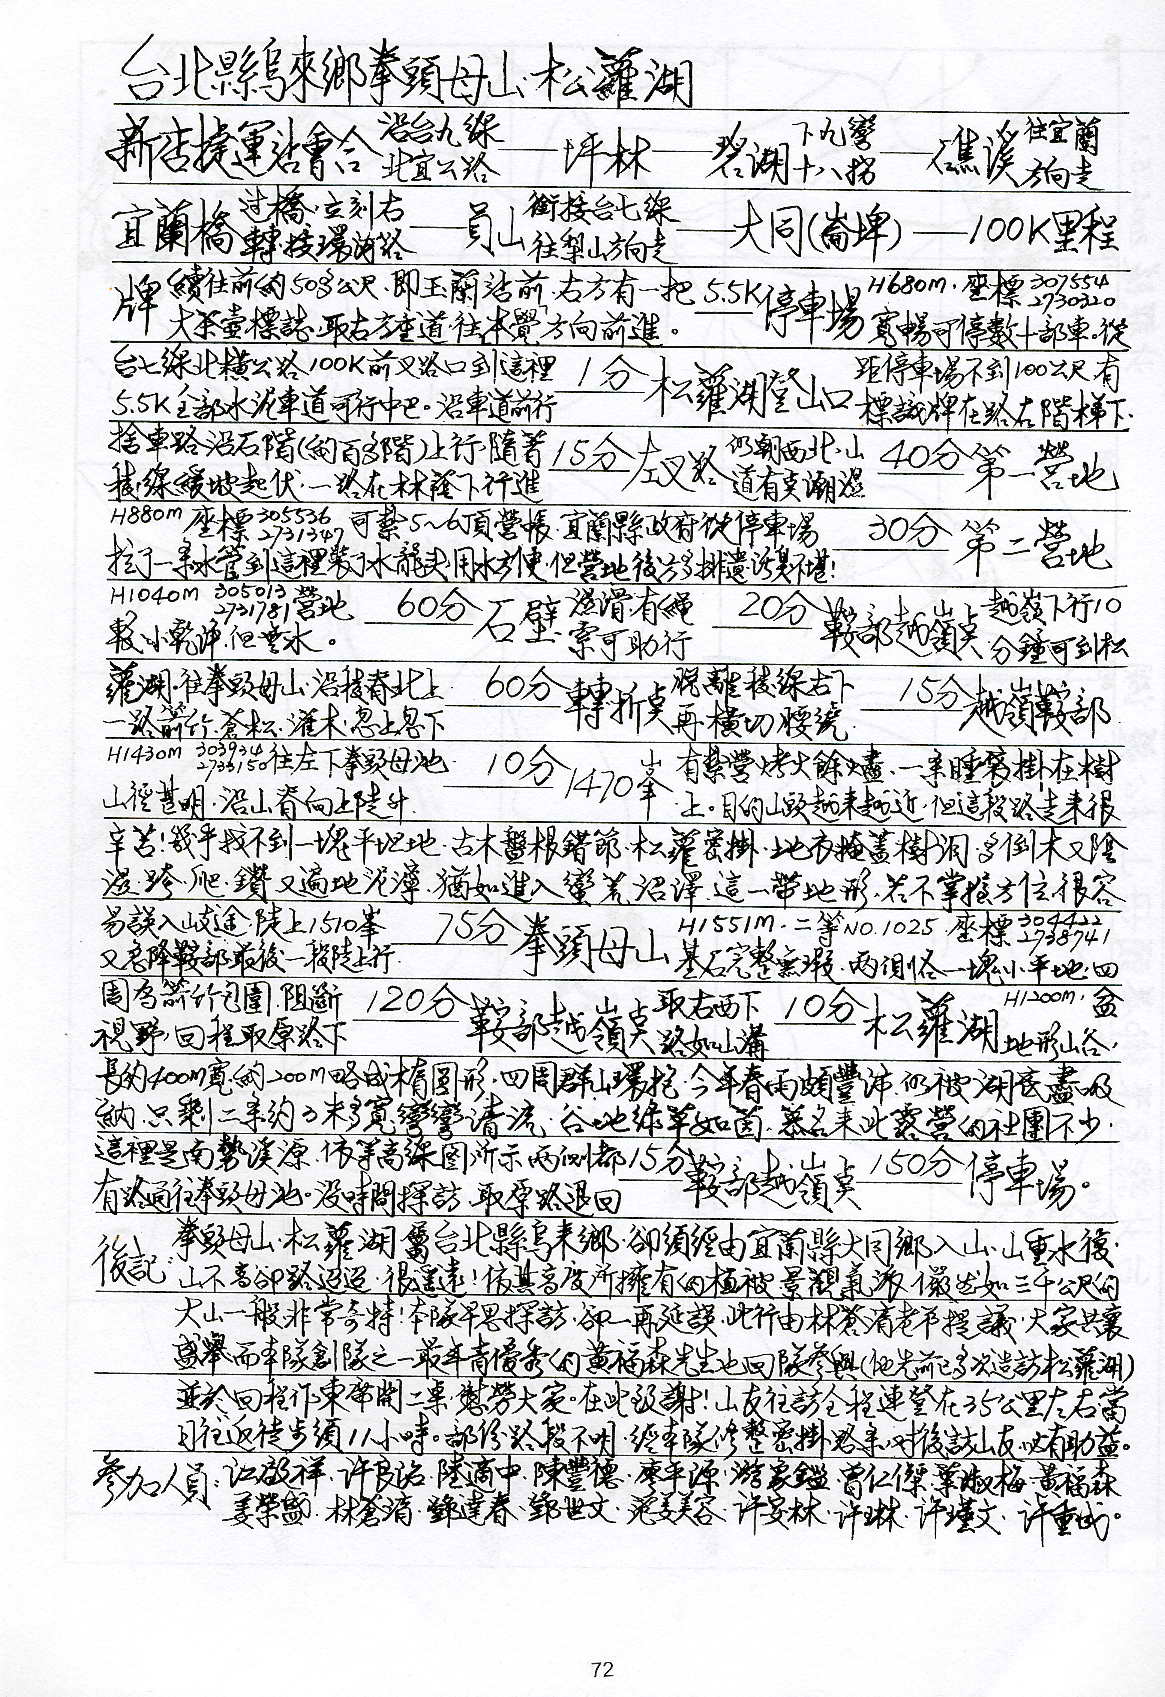 台北縣烏來鄉拳頭母山·松蘿湖
新店捷運站會合 沿台九線北宜公路 — 坪林 — 碧湖 下九彎十八拐 — 礁溪 往宜蘭方向走
宜蘭橋 过橋·立刻右轉·接環河路 — 員山 銜接台七線往梨山方向走 — 大同(崙埤) — 100K里程
牌 續往前約50多公尺·即玉蘭站前·右方有一把大茶壺標誌·取右方產道·往本覺方向前進。 5.5K 停車場 H680m·座標 307554 2730320 寬暢可停數十部車。從
台七線北橫公路100K前叉路口到這裡5.5K全部水泥車道可行中巴。沿車道前行 1分 松蘿湖登山口 距停車場不到100公尺有標識牌在路右階梯下·
捨車路沿石階(約百多階)上行·隨著稜線緩坡起伏·一路在林蔭下行進 15分 左叉路 仍朝西北·山道有點潮濕 40分 第一營地
H880m 座標 305536 2731347 可紮5~6頂營帳·宜蘭縣政府從停車場挖了一條水管到這裡裝了水龍頭·用水方便·但營地後方多排遺污臭不堪! 30分 第二營地
H1040m 305013 2731781 營地較小乾淨·但無水。 60分 石壁 濕滑·有繩索可助行 20分 鞍部越嶺點 越嶺下行10分鐘可到松
蘿湖·往拳頭母山·沿稜脊北上·一路箭竹·蒼松·灌木·忽上忽下 60分 轉折點 脫離稜線右下再橫切腰繞 15分 越嶺鞍部
H1430m 303934 2733150 往左下拳頭母池·山徑甚明·沿山脊向上陡升 10分 1470峯 有紮營烤火餘燼·一条睡袋掛在樹上。目的山頭越來越近·但這段路走來很
辛苦!幾乎找不到一塊平坦地·古木盤根錯節·松蘿密掛·地衣掩蓋樹洞·多倒木又陰
濕·跨·爬·鑽又遍地泥濘·猶如進入蠻荒沼澤·這一帶地形·若不掌握方位·很容
易誤入岐途·陡上1510峯又急降鞍部最後一段陡上行 75分 拳頭母山 H1551m·二等NO.1025 座標 304422 2738741 基石完整無瑕·兩側各一塊小平地·四
周為箭竹包圍·阻斷視野·回程取原路下 120分 鞍部越嶺點 取右西下路如山溝 10分 松蘿湖 H1200m·盆地形山谷·
長約400m寬約200m略成橢圓形·四周群山環抱·今年春雨頗豐沛·仍被湖底盡吸
納·只剩二条約3米多寬彎彎清流·谷地綠草如茵·慕名來此露營的社團不少·
這裡是南勢溪源·依等高線图所示兩側都有路通往拳頭母池·沒時間探訪·取原路退回 15分 鞍部越嶺點 150分 停車場。
後記: 拳頭母山·松蘿湖屬台北縣烏來鄉·卻須經由宜蘭縣大同鄉入山·山重水複·
山不高卻路迢迢·很遙遠!依其高度所擁有的植被·景觀氣派·儼然如三千公尺的
大山一般非常奇特!本隊早思探訪·卻一再延誤·此行由林蒼滑老師提議·大家共襄
盛舉·而本隊創隊之一最年青優秀的黃福森先生也回隊參與(他先前已多次造訪松蘿湖)
並於回程作東席開二桌·慰勞大家。在此致謝!山友往訪全程連登在35公里左右當
日往返徒步須11小時。部份路段不明·經本隊修整密掛路条·對後訪山友必有助益。
參加人員: 江啟祥·許良洺·陸適中·陳豐德·廖平源·游家鎰·曾仁傑·葉淑梅·黃福森
姜榮盛·林蒼滑·鍾達春·鄧世文·范美容·許安林·許琳·許瑾文·許重成。
72